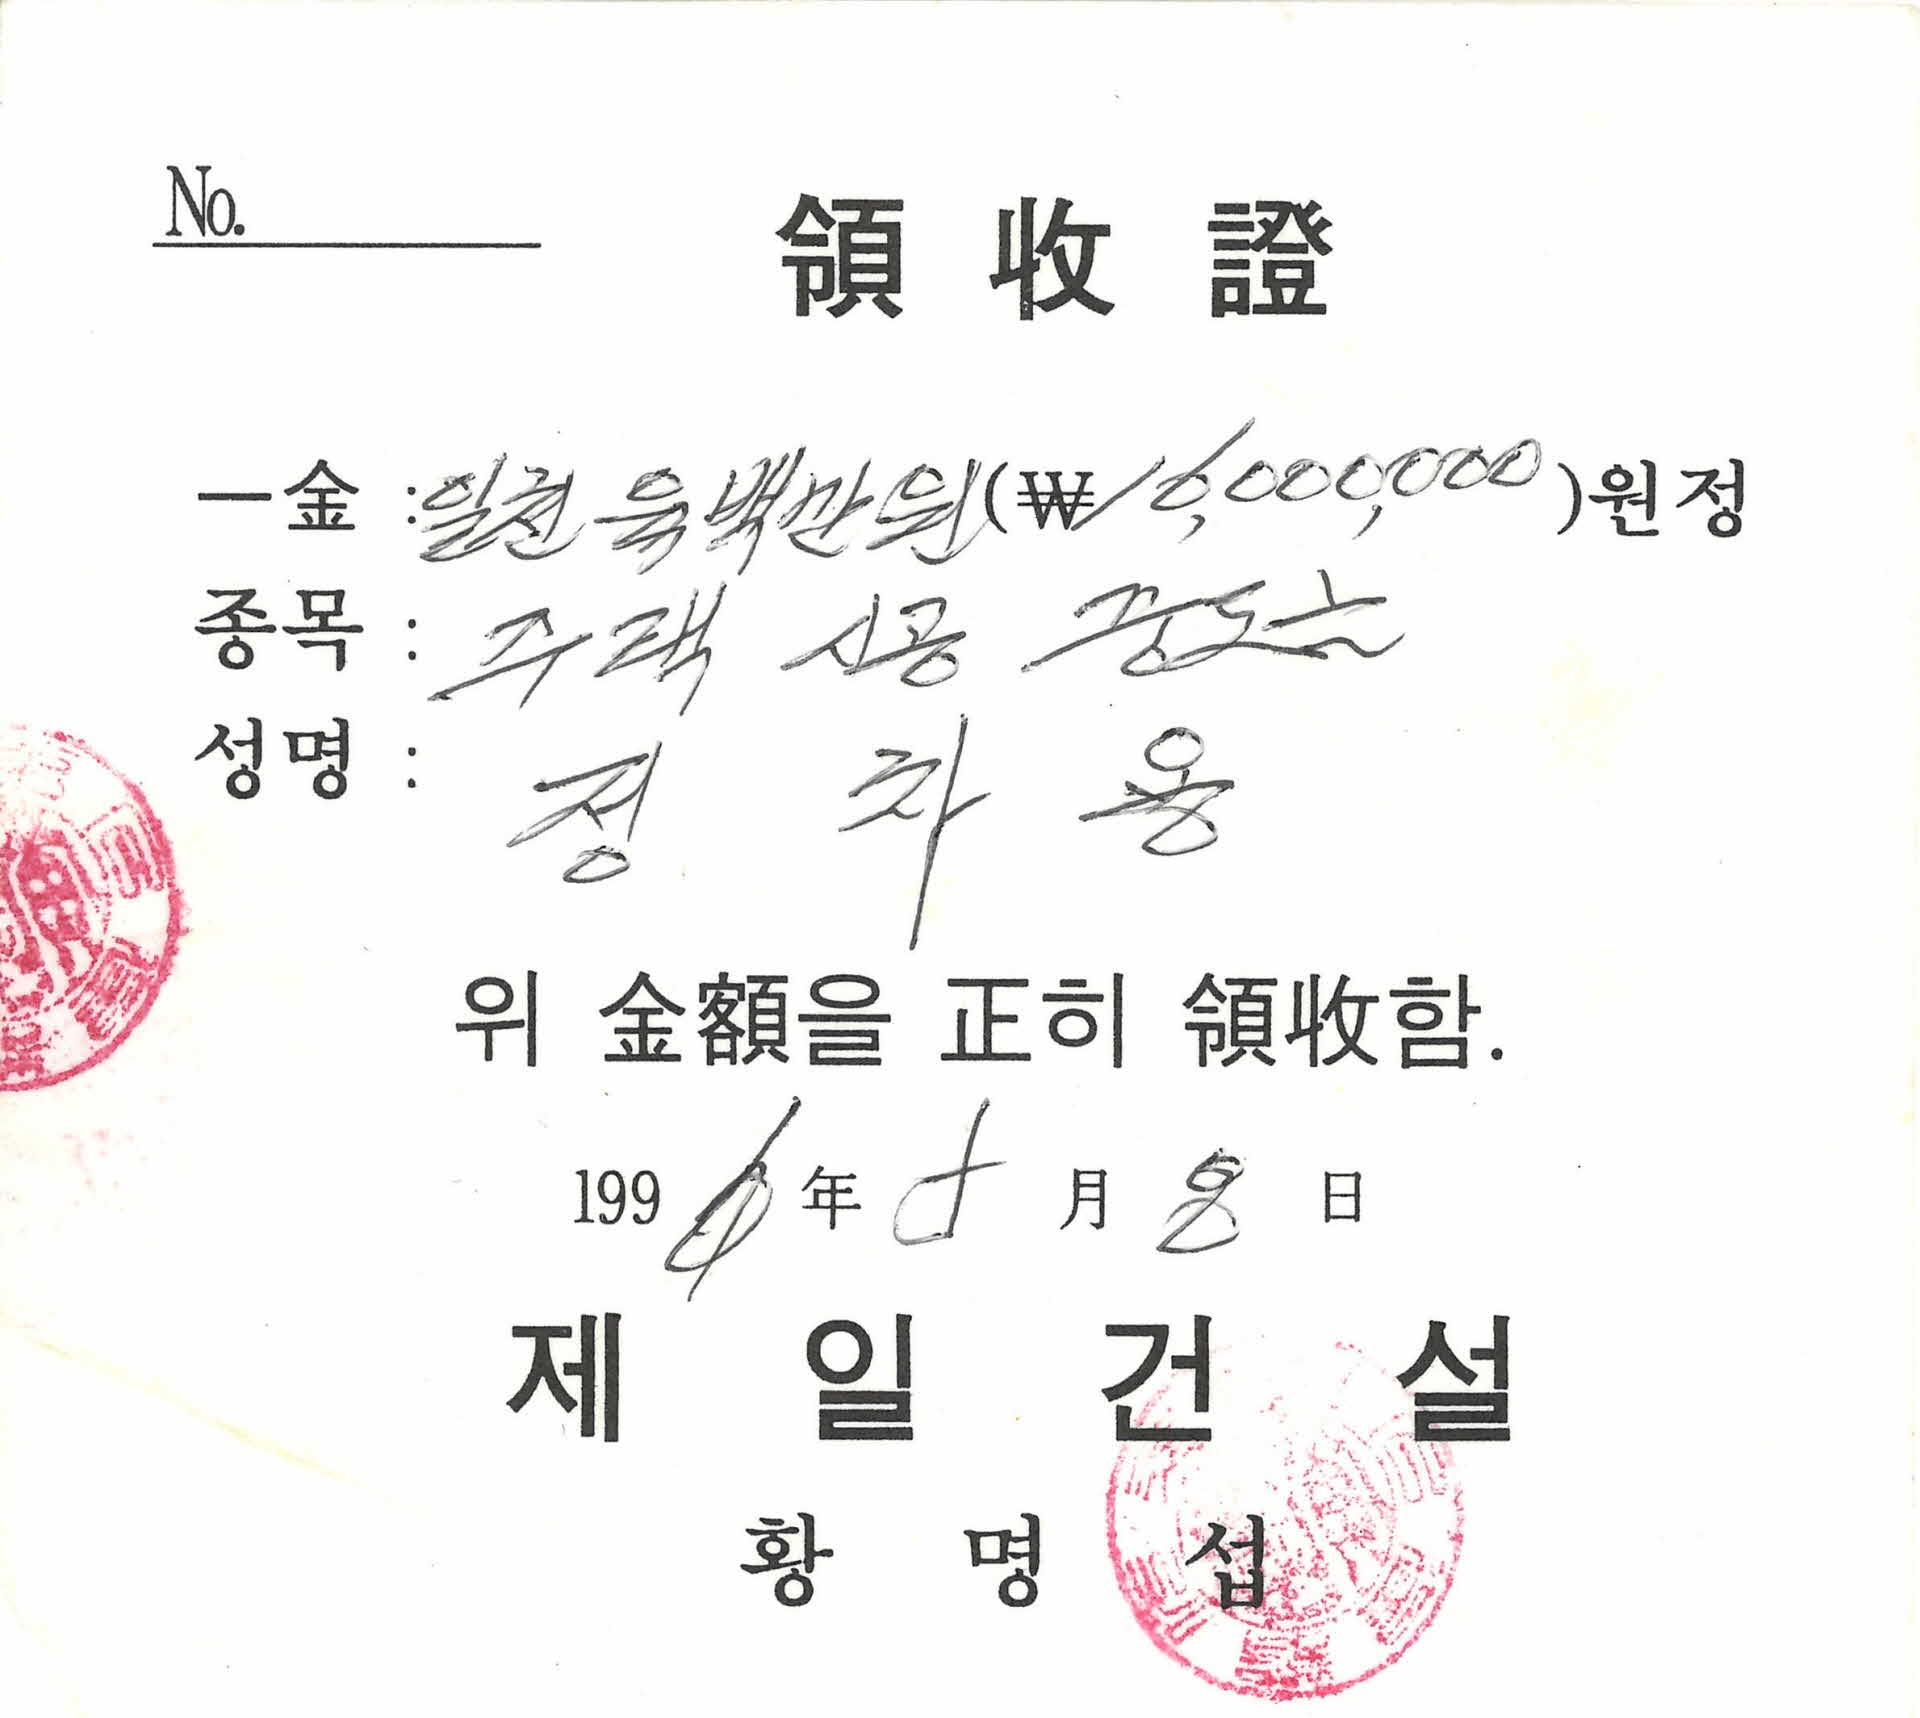 No.
領收證
一金 : 일천육백만원(₩16,000,000)원정
종목 : 주택 시공 중도금
성명 : 정차용
위 金額을 正히 領收함.
1996年 月 8日
제일건설
황명섭